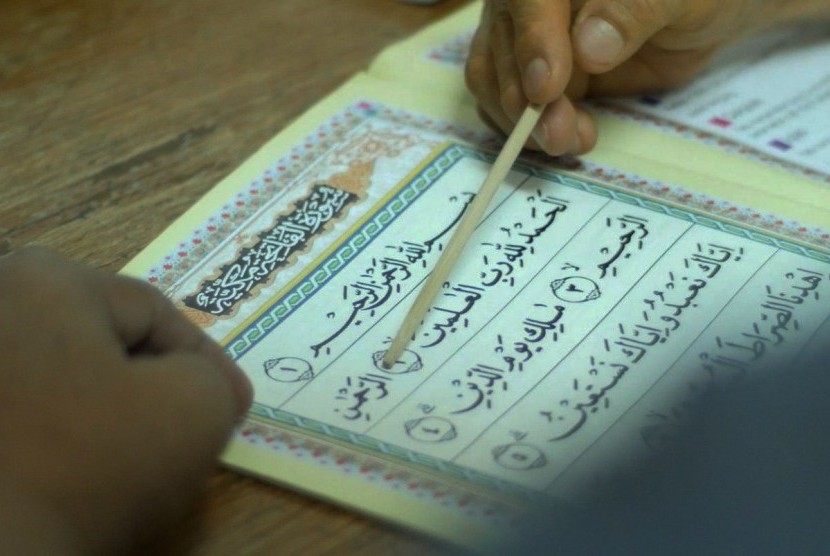 سُوْرَةُ الْفَاتِحَةِ مَكِّيَّةٌ
بِسْمِ اللّٰهِ الرَّحْمٰنِ الرَّحِيْمِ ١
اَلْحَمْدُ لِلّٰهِ رَبِّ الْعٰلَمِيْنَ الرَّحْمٰنِ
الرَّحِيْمِ ٣ مٰلِكِ يَوْمِ الدِّيْنِ ٤
اِيَّاكَ نَعْبُدُ وَاِيَّاكَ نَسْتَعِيْنُ ٥
اِهْدِنَا الصِّرَاطَ